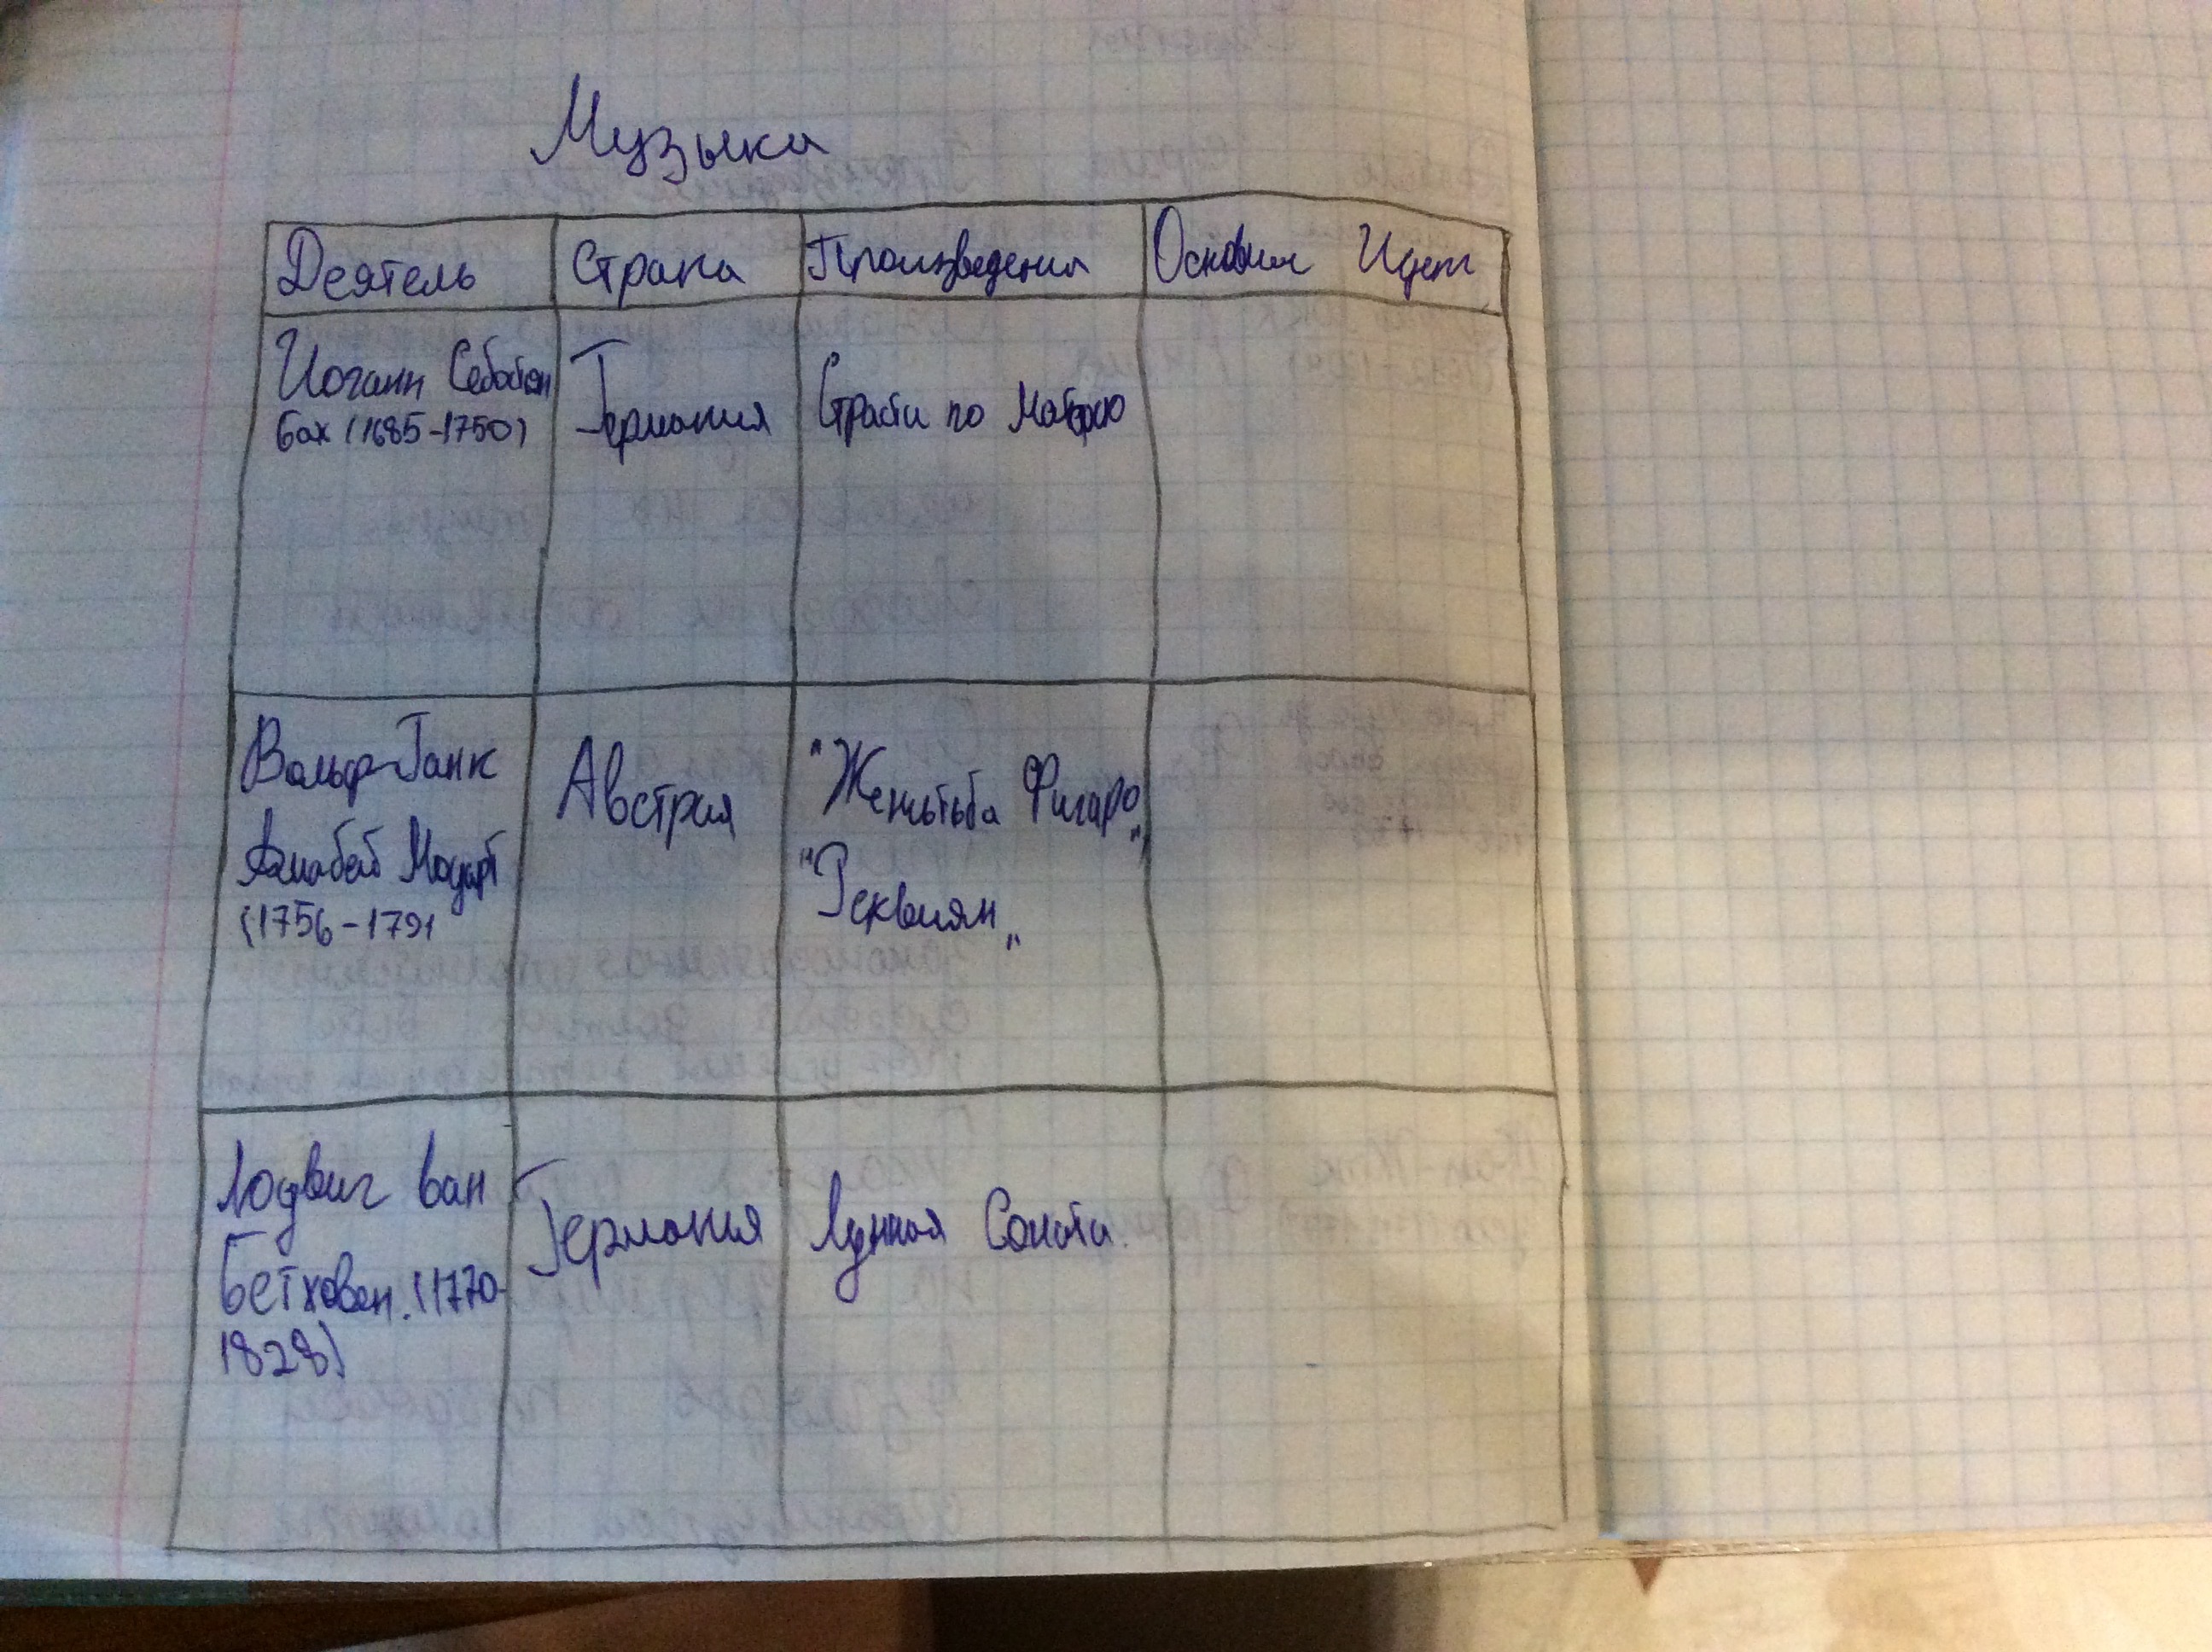 Музыка
Деятель Страна Произведения Основные Идеи
Иоганн Себастьян
Бах (1685-1750)
Германия
Страсти по Матфею
Вольф-Ганк
Амабей Моцарт
(1756-1791
Австрия
"Женитьба Фигаро"
"Реквиям"
Людвиг ван
Бетховен. (1770-
1828)
Германия
Лунная Соната.